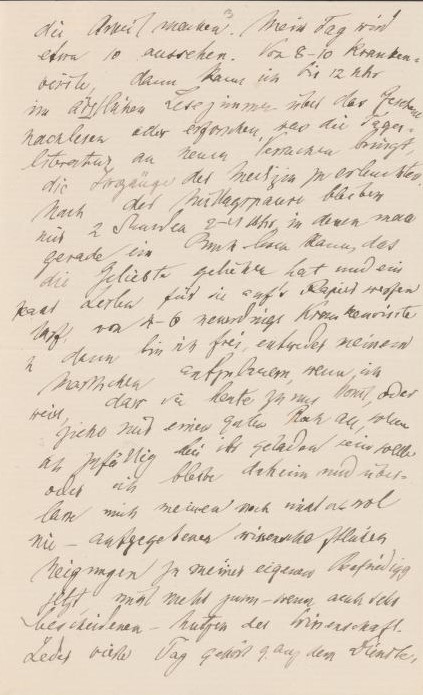 die Arbeit machen. Mein Tag wird
etwa so aussehen. Von 8–10 Kranken-
visite, dann kann ich bis 12 Uhr
im ärztlichen Lesezimmer über das Gesehene
nachlesen oder erforschen, was die Tages-
literatur an neuen Versuchen bringt,
die Vorgänge der Medizin zu erleuchten
Nach der Mittagspause bleiben
nur 2 Stunden 2–4 Uhr, in denen man
gerade im Buch lesen kann, das
die Geliebte geliehen hat und ein
paar Zeilen für sie auf's Papier werfen
darf, von 4–6 neuerdings Krankenvisite
u dann bin ich frei, entweder meinem
Marthchen aufzulauern, wenn ich
weiß, daß sie heute zu uns kommt, oder
ziehe mir einen guten Rock an, wenn
ich zufällig bei ihr geladen sein sollte
oder ich bleibe daheim und über-
lasse mich meinen noch immer
nie – aufgegebenen wissenschaftlichen
Neigungen zu meiner eigenen Befriedigg
jetzt und nicht zum – wenn auch sehr
bescheidenen – Nutzen der Wissenschaft.
Jeder vierte Tag gehört ganz dem Dienste,